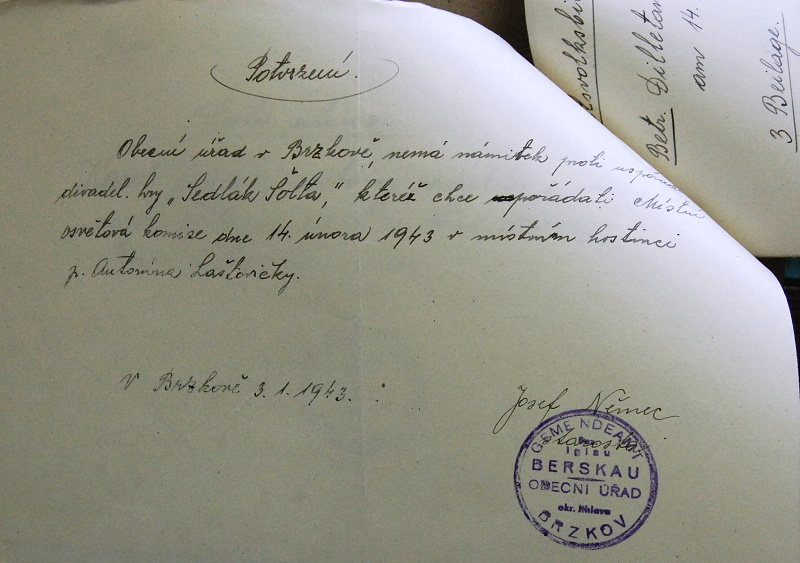 Potvrzení.
Obecní úřad v Brzkově, nemá námitek proti
divadel. hry „Sedlák Šolta," kteréž chce uspořádati Místní
osvětová komise dne 14. února 1943 v místním hostinci
p. Antonína Laštovičky.
V Brzkově 3.1.1943.
Josef Němec
starosta
GEMEINDEAMT
Iglau
BERSKAU
OBECNÍ ÚŘAD
okr. Jihlava
BRZKOV
Betr. Dilletan
am 14.
3 Beilage.